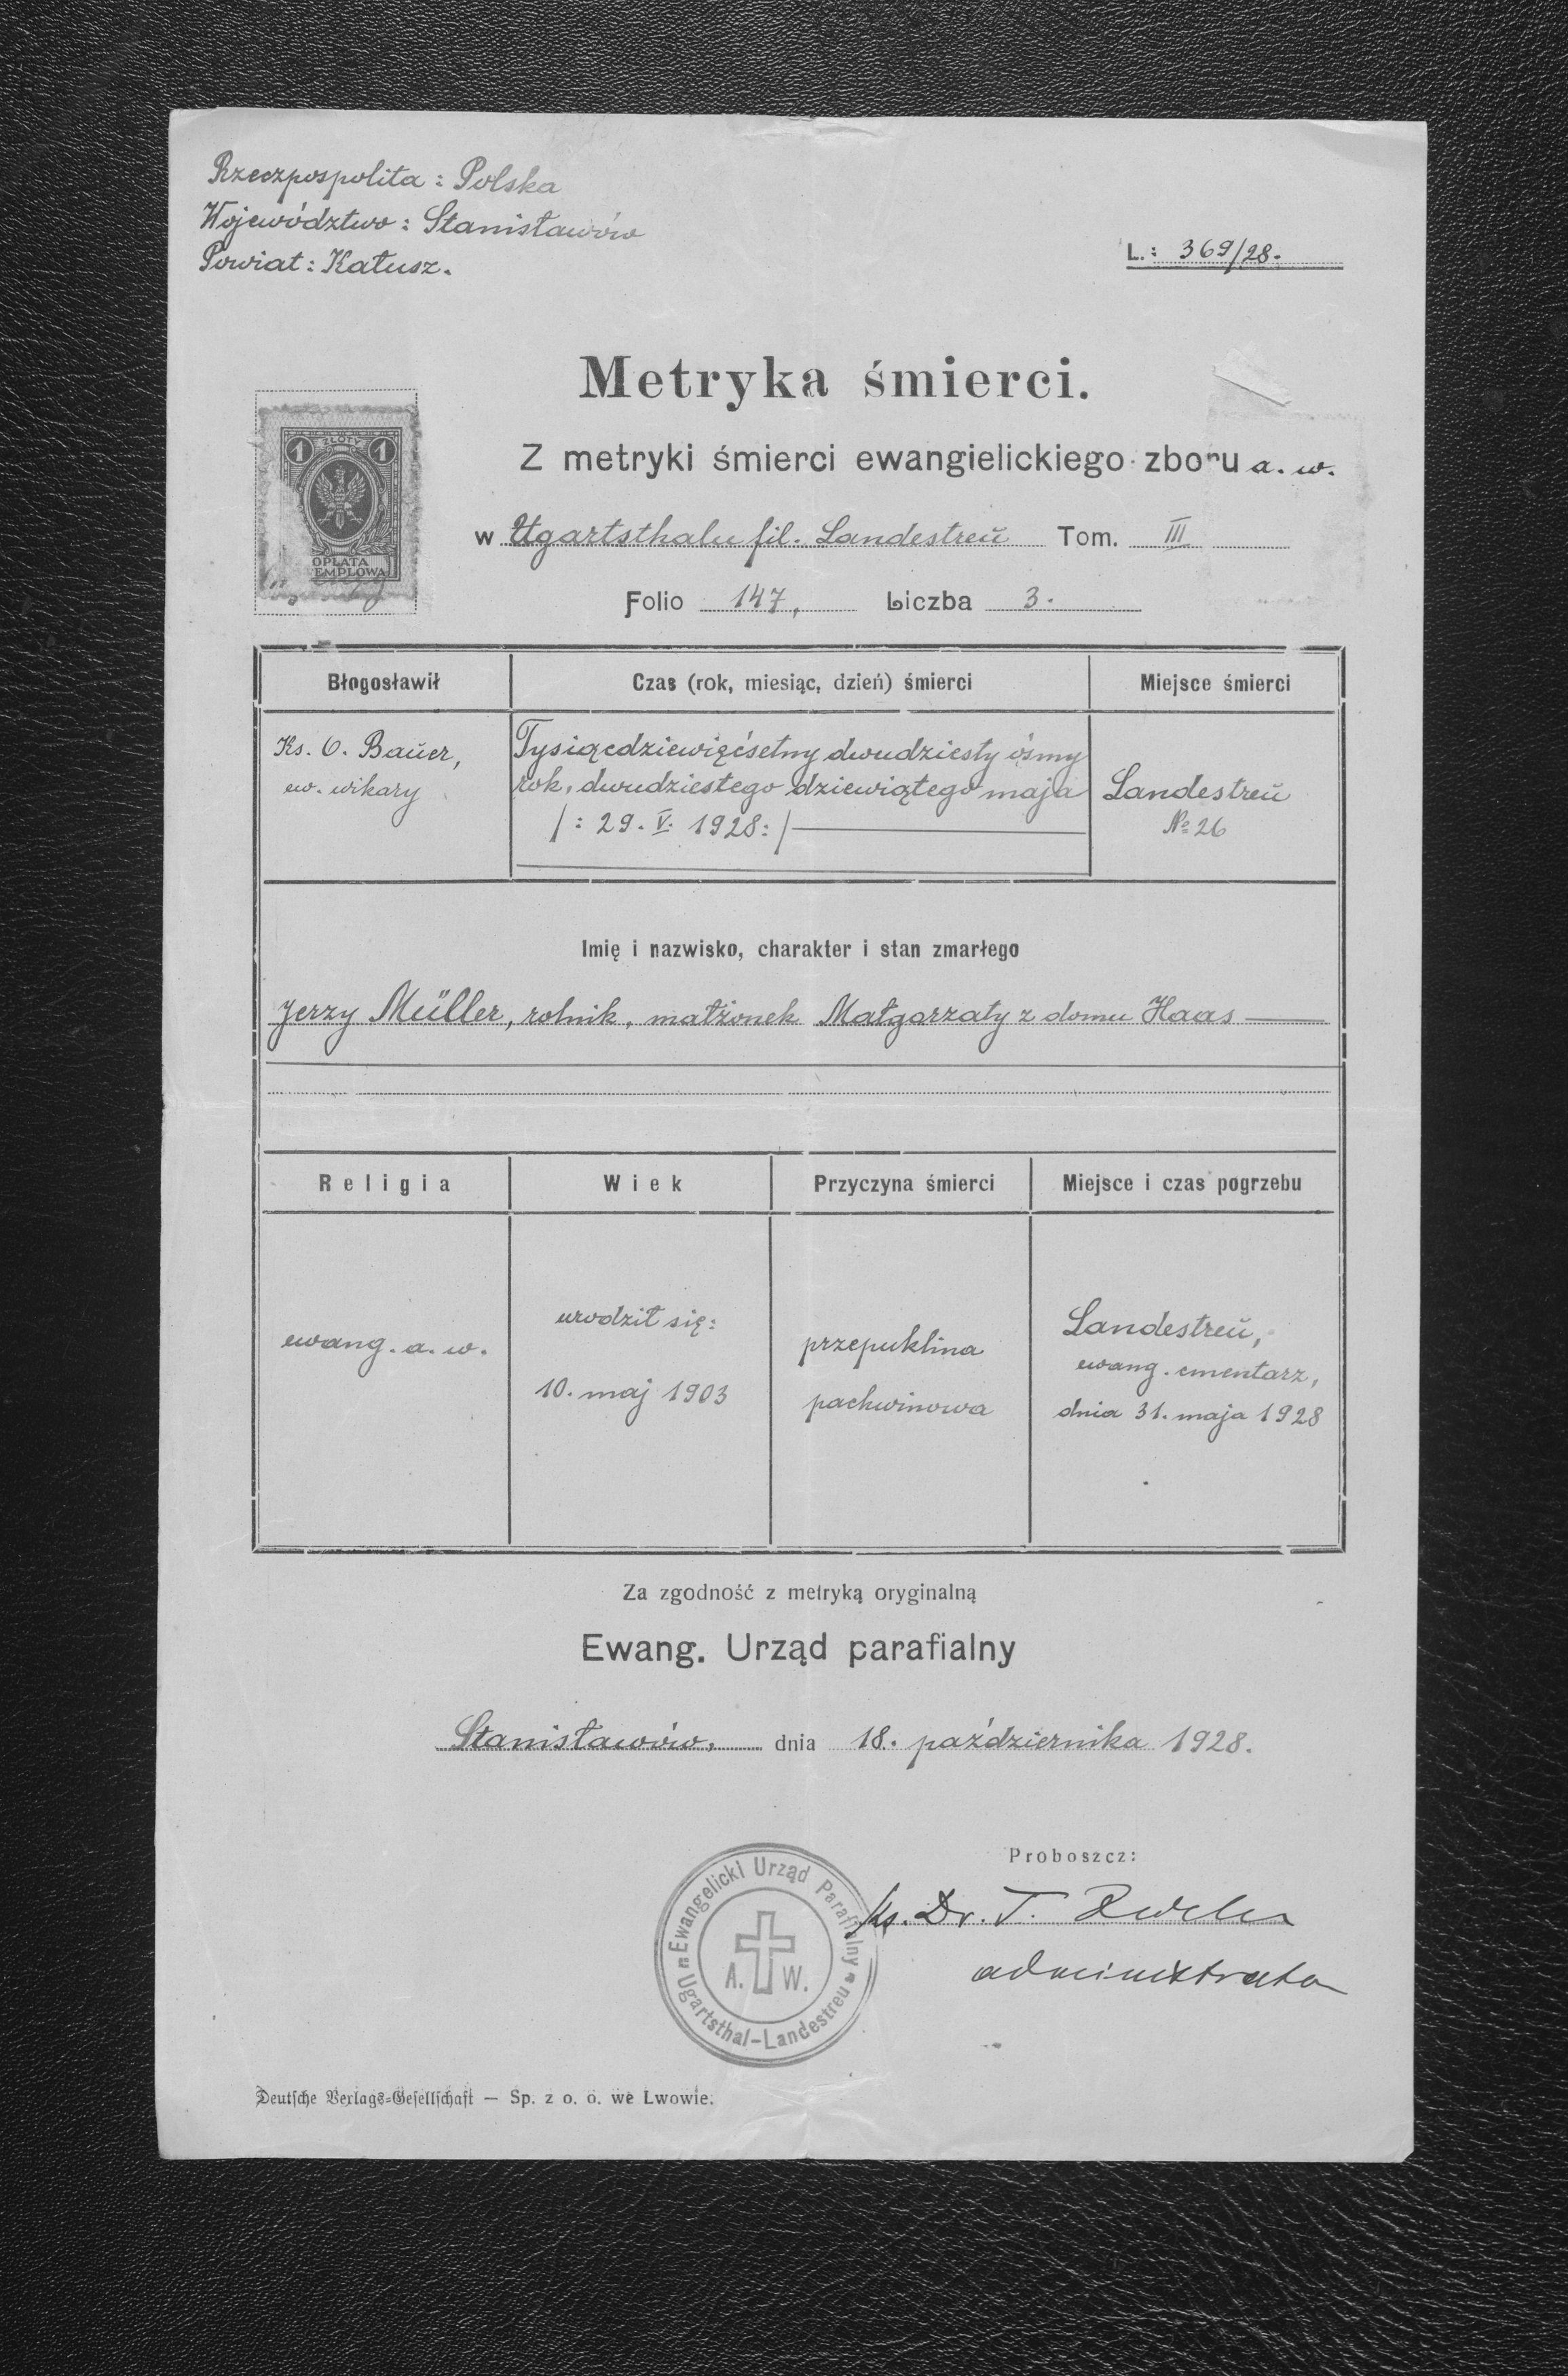 Rzeczpospolita: Polska
Województwo: Stanisławów
Powiat: Kałusz.
L.: 369/28.
Metryka śmierci.
Z metryki śmierci ewangielickiego zboru a. w.
w Ugartsthalu fil. Landestreŭ Tom. III
Folio 147, Liczba 3.
1 ZŁOTY 1
OPŁATA
STEMPLOWA
Błogosławił
Czas (rok, miesiąc, dzień) śmierci
Miejsce śmierci
Ks. O. Baŭer,
ew. wikary
Tysiącdziewięćsetny dwudziesty ósmy
rok, dwudziestego dziewiątego maja
/: 29. V. 1928: /
Landestreŭ
№ 26
Imię i nazwisko, charakter i stan zmarłego
Jerzy Müller, rolnik, małżonek Małgorzaty z domu Haas
Religia
Wiek
Przyczyna śmierci
Miejsce i czas pogrzebu
ewang. a. w.
urodził się:
10. maj 1903
przepuklina
pachwinowa
Landestreŭ,
ewang. cmentarz,
dnia 31. maja 1928
Za zgodność z metryką oryginalną
Ewang. Urząd parafialny
Stanisławów, dnia 18. października 1928.
Proboszcz:
Ks. Dr. T.
administrator
Ewangelicki Urząd Parafialny
Ugartsthal-Landestreu
A. W.
Deutsche Verlags-Gesellschaft — Sp. z o. o. we Lwowie.